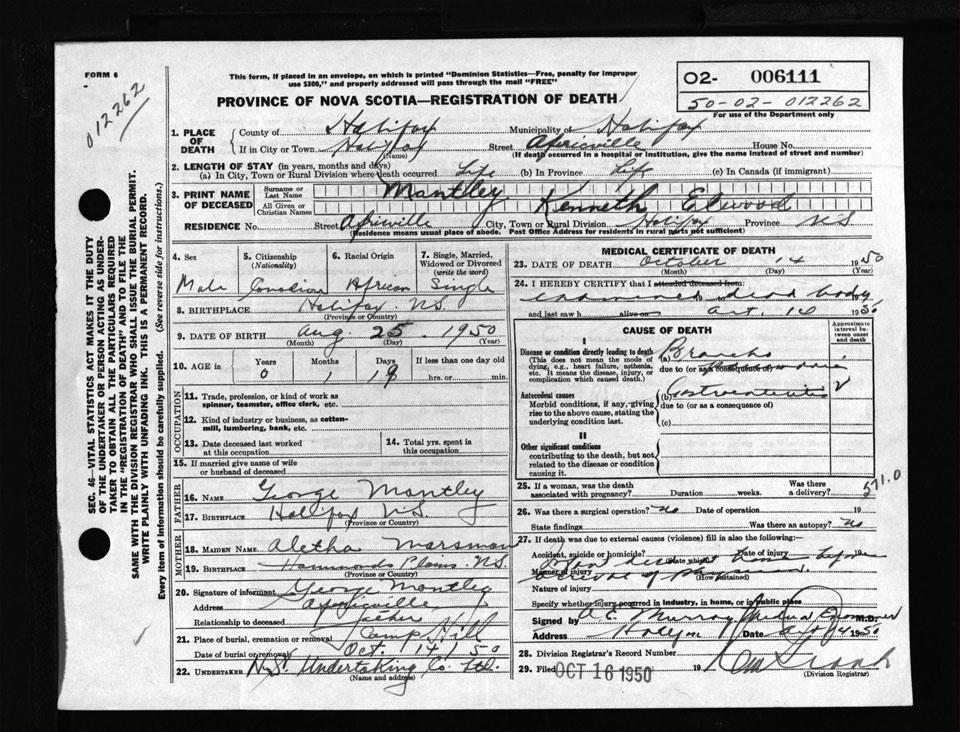 FORM 6
012262
This form, if placed in an envelope, on which is printed "Dominion Statistics—Free, penalty for improper
use $300," and properly addressed will pass through the mail "FREE"
PROVINCE OF NOVA SCOTIA—REGISTRATION OF DEATH
02- 006111
50-02-012262
For use of the Department only
SEC. 46—VITAL STATISTICS ACT MAKES IT THE DUTY
OF THE UNDERTAKER OR PERSON ACTING AS UNDER-
TAKER TO OBTAIN ALL THE PARTICULARS REQUIRED
IN THE "REGISTRATION OF DEATH" AND TO FILE THE
SAME WITH THE DIVISION REGISTRAR WHO SHALL ISSUE THE BURIAL PERMIT.
WRITE PLAINLY WITH UNFADING INK. THIS IS A PERMANENT RECORD.
Every item of information should be carefully supplied. (See reverse side for instructions.)
1. PLACE OF DEATH County of Halifax Municipality of Halifax
If in City or Town Halifax (Name) Street Africville House No.
(If death occurred in a hospital or institution, give the name instead of street and number)
2. LENGTH OF STAY (in years, months and days)
(a) In City, Town or Rural Division where death occurred Life (b) In Province Life (c) In Canada (if immigrant)
3. PRINT NAME OF DECEASED Surname or Last Name Mantley
All Given or Christian Names Kenneth Elwood
RESIDENCE No. Street Africville City, Town or Rural Division Halifax Province N.S
(Residence means usual place of abode. Post Office Address for residents in rural parts not sufficient)
4. Sex 5. Citizenship (Nationality) 6. Racial Origin 7. Single, Married, Widowed or Divorced (write the word)
Male Canadian African Single
8. BIRTHPLACE Halifax N.S.
(Province or Country)
9. DATE OF BIRTH Aug 25 1950
(Month) (Day) (Year)
10. AGE in Years Months Days If less than one day old
0 1 19 hrs. or min.
OCCUPATION
11. Trade, profession, or kind of work as
spinner, teamster, office clerk, etc.
12. Kind of industry or business, as cotton-
mill, lumbering, bank, etc.
13. Date deceased last worked
at this occupation
14. Total yrs. spent in
this occupation
15. If married give name of wife
or husband of deceased
FATHER
16. NAME George Mantley
17. BIRTHPLACE Halifax N.S.
(Province or Country)
MOTHER
18. MAIDEN NAME Aletha Marsman
19. BIRTHPLACE Hammonds Plains N.S.
(Province or Country)
20. Signature of informant George Mantley
Address Africville
Relationship to deceased Father
21. Place of burial, cremation or removal Camp Hill
Date of burial or removal Oct. 14/50
22. UNDERTAKER N.S. Undertaking Co. Ltd.
(Name and address)
MEDICAL CERTIFICATE OF DEATH
23. DATE OF DEATH October 14 1950
(Month) (Day) (Year)
24. I HEREBY CERTIFY that I attended deceased from:
examined dead body
and last saw h alive on Oct. 14 1950
CAUSE OF DEATH
Approximate interval between onset and death
I
Disease or condition directly leading to death
(This does not mean the mode of
dying, e.g., heart failure, asthenia,
etc. It means the disease, injury, or
complication which caused death.)
(a) Broncho
due to (or as a consequence of)
Antecedent causes
Morbid conditions, if any, giving
rise to the above cause, stating the
underlying condition last.
(b)
due to (or as a consequence of)
(c)
II
Other significant conditions
contributing to the death, but not
related to the disease or condition
causing it.
25. If a woman, was the death
associated with pregnancy? Duration weeks. Was there a delivery?
571.0
26. Was there a surgical operation? No Date of operation 19
State findings Was there an autopsy? No
27. If death was due to external causes (violence) fill in also the following:
Accident, suicide or homicide? Date of injury
home before
Manner of injury (How sustained)
arrival of physician.
Nature of injury
Specify whether injury occurred in industry, in home, or in public place
Signed by A. C. Murray Medical Examiner M.D.
Address Halifax Date Oct 14 1950
28. Division Registrar's Record Number
29. Filed OCT 16 1950
(Division Registrar)